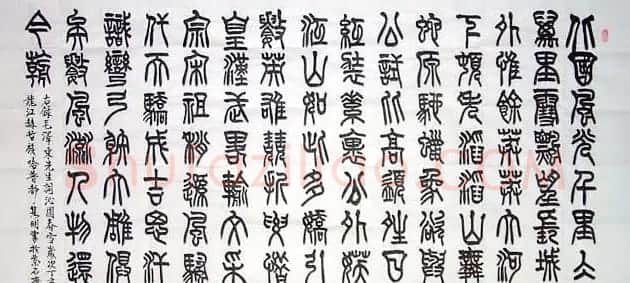 北國風光千里冰
萬里雪飄望長城
外惟餘莽莽大河
下頓失滔滔山舞
蛇原馳蠟象欲與
公試比高須晴日
紅裝素裹分外妖
江山如此多嬌引
數英雄競折腰惜
皇漢武略輸文采
宗宋祖稍遜風騷
代天驕成吉思汗
識彎弓射大雕俱
矣數風流人物還
今朝
右錄毛澤東先生詞沁園春雪歲次丁
龍江